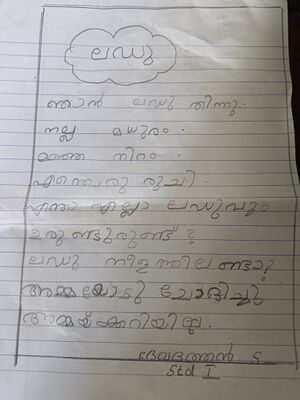 ലഡു
ഞാൻ ലഡു തിന്നു.
നല്ല മധുരം.
മഞ്ഞ നിറം.
എന്തൊരു രുചി.
എന്താ എല്ലാ ലഡുവും
ഉരുണ്ടുരുണ്ട് ?
ലഡു നീളത്തിലുണ്ടോ?
അമ്മയോടു ചോദിച്ചു
അമ്മയ്ക്കറിയില്ല.
ദേവദത്തൻ. S
Std I